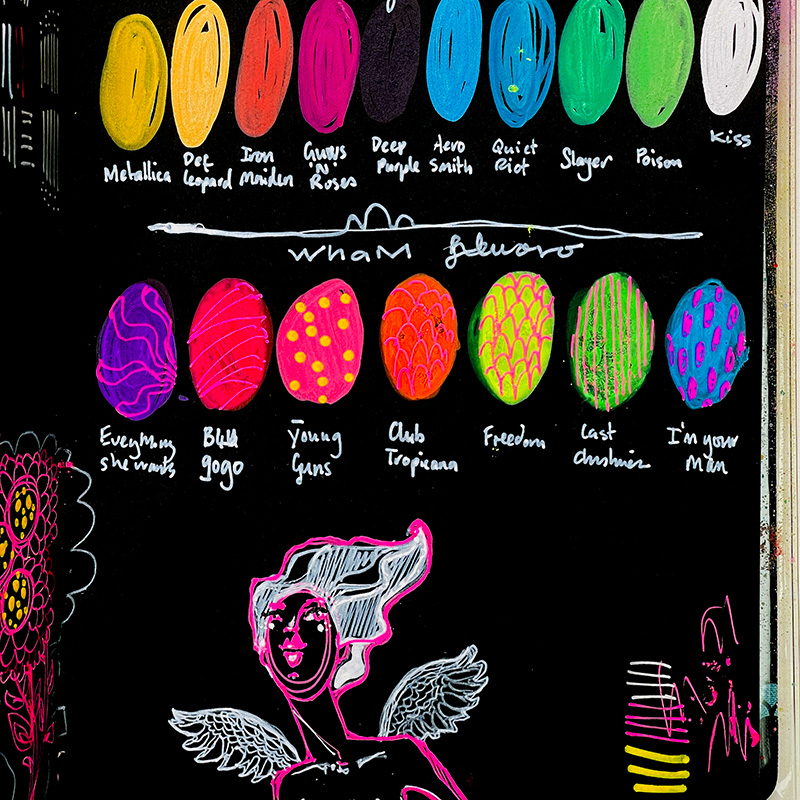 Metallica
Def
Leopard
Iron
Maiden
Guns
N'
Roses
Deep
Purple
Aero
Smith
Quiet
Riot
Slayer
Poison
Kiss
WHAM
Everything
she wants
Young
Guns
Club
Tropicana
Freedom
Last
I'm your
Man
gogo